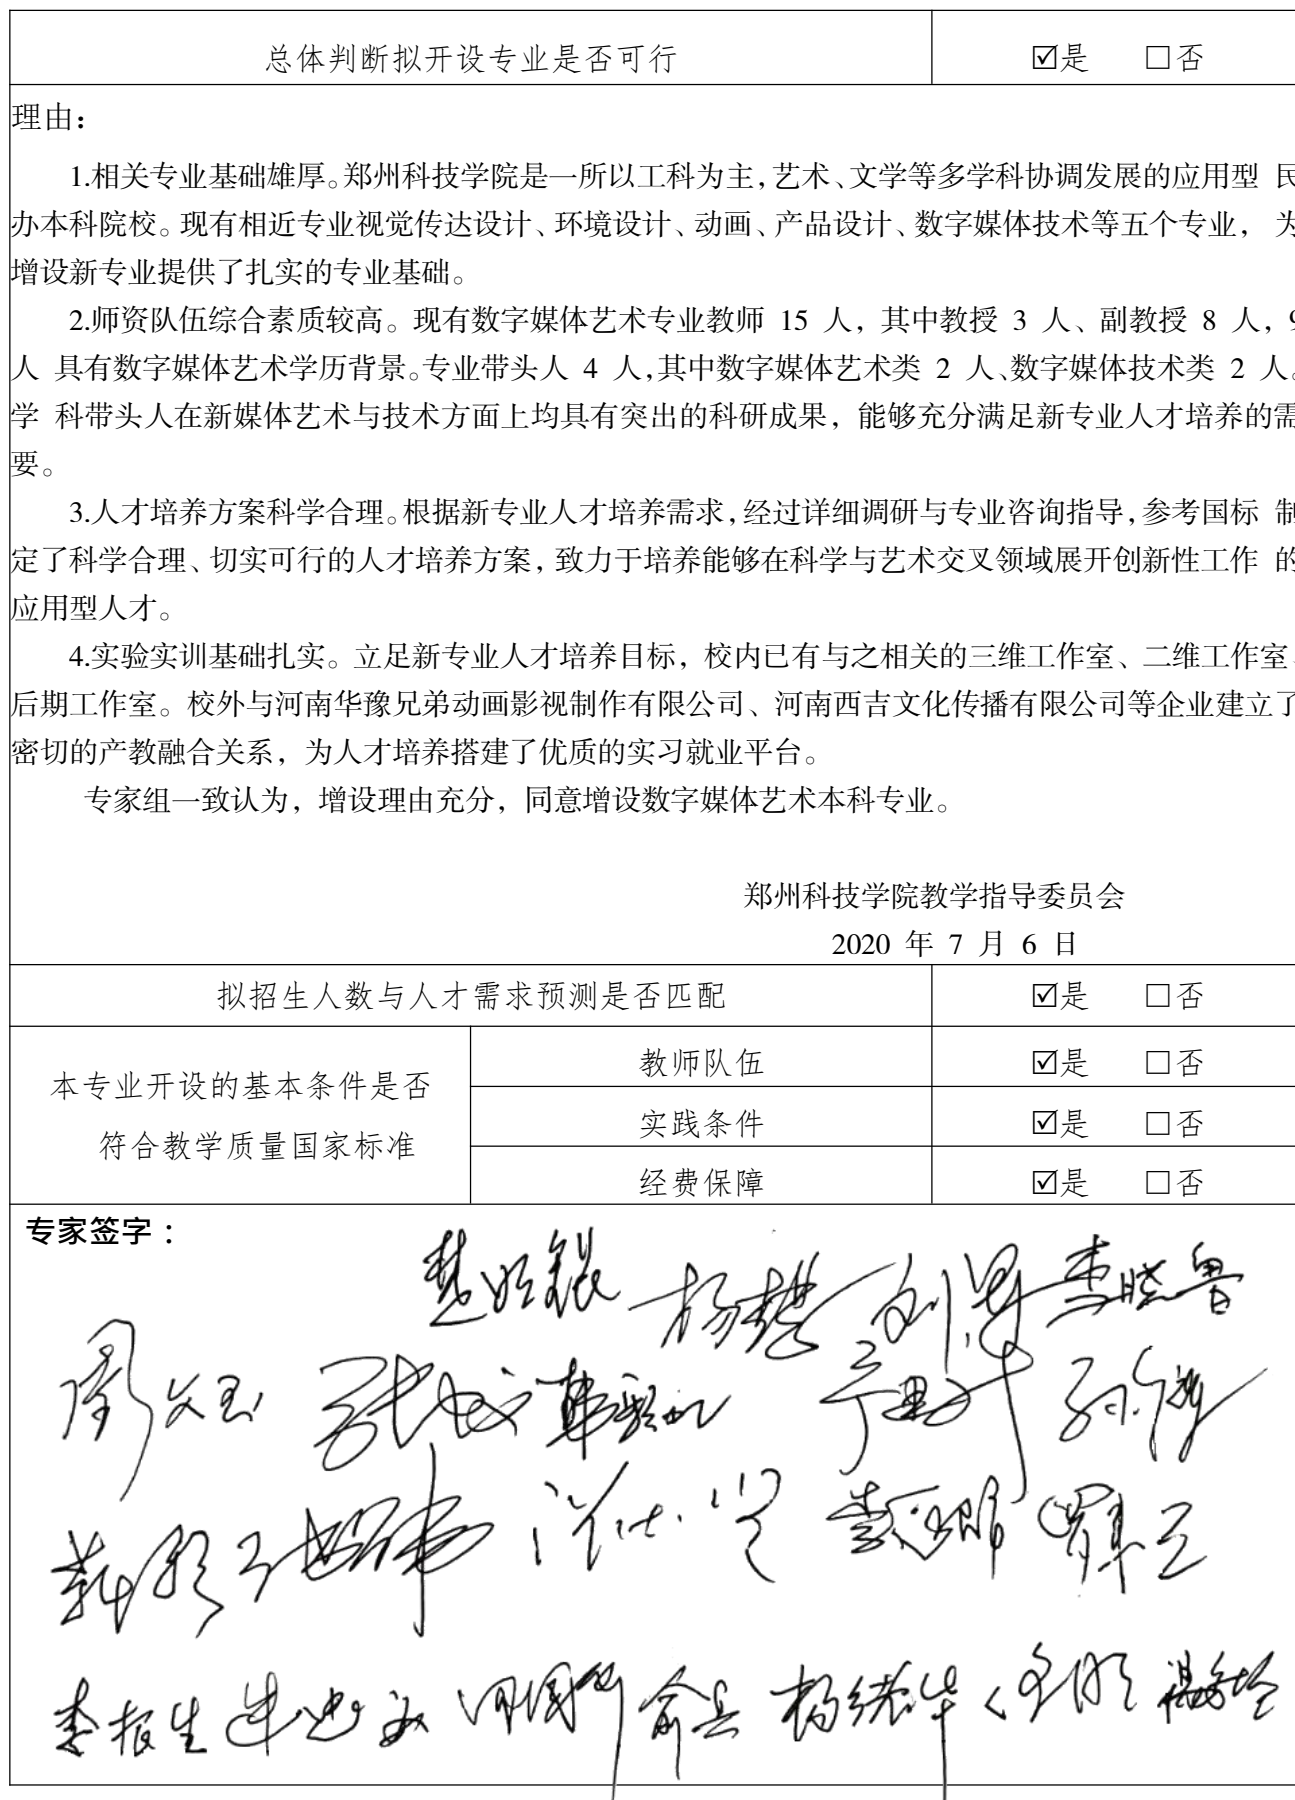 总体判断拟开设专业是否可行 ☑是 □否
理由：
1.相关专业基础雄厚。郑州科技学院是一所以工科为主，艺术、文学等多学科协调发展的应用型 民
办本科院校。现有相近专业视觉传达设计、环境设计、动画、产品设计、数字媒体技术等五个专业， 为
增设新专业提供了扎实的专业基础。
2.师资队伍综合素质较高。现有数字媒体艺术专业教师 15 人，其中教授 3 人、副教授 8 人，9
人 具有数字媒体艺术学历背景。专业带头人 4 人，其中数字媒体艺术类 2 人、数字媒体技术类 2 人。
学 科带头人在新媒体艺术与技术方面上均具有突出的科研成果，能够充分满足新专业人才培养的需
要。
3.人才培养方案科学合理。根据新专业人才培养需求，经过详细调研与专业咨询指导，参考国标 制
定了科学合理、切实可行的人才培养方案，致力于培养能够在科学与艺术交叉领域展开创新性工作 的
应用型人才。
4.实验实训基础扎实。立足新专业人才培养目标，校内已有与之相关的三维工作室、二维工作室、
后期工作室。校外与河南华豫兄弟动画影视制作有限公司、河南西吉文化传播有限公司等企业建立了
密切的产教融合关系，为人才培养搭建了优质的实习就业平台。
专家组一致认为，增设理由充分，同意增设数字媒体艺术本科专业。
郑州科技学院教学指导委员会
2020 年 7 月 6 日
拟招生人数与人才需求预测是否匹配 ☑是 □否
本专业开设的基本条件是否
符合教学质量国家标准
教师队伍 ☑是 □否
实践条件 ☑是 □否
经费保障 ☑是 □否
专家签字：
李晓鲁
周文玉
李振生 俞兵 杨绪华